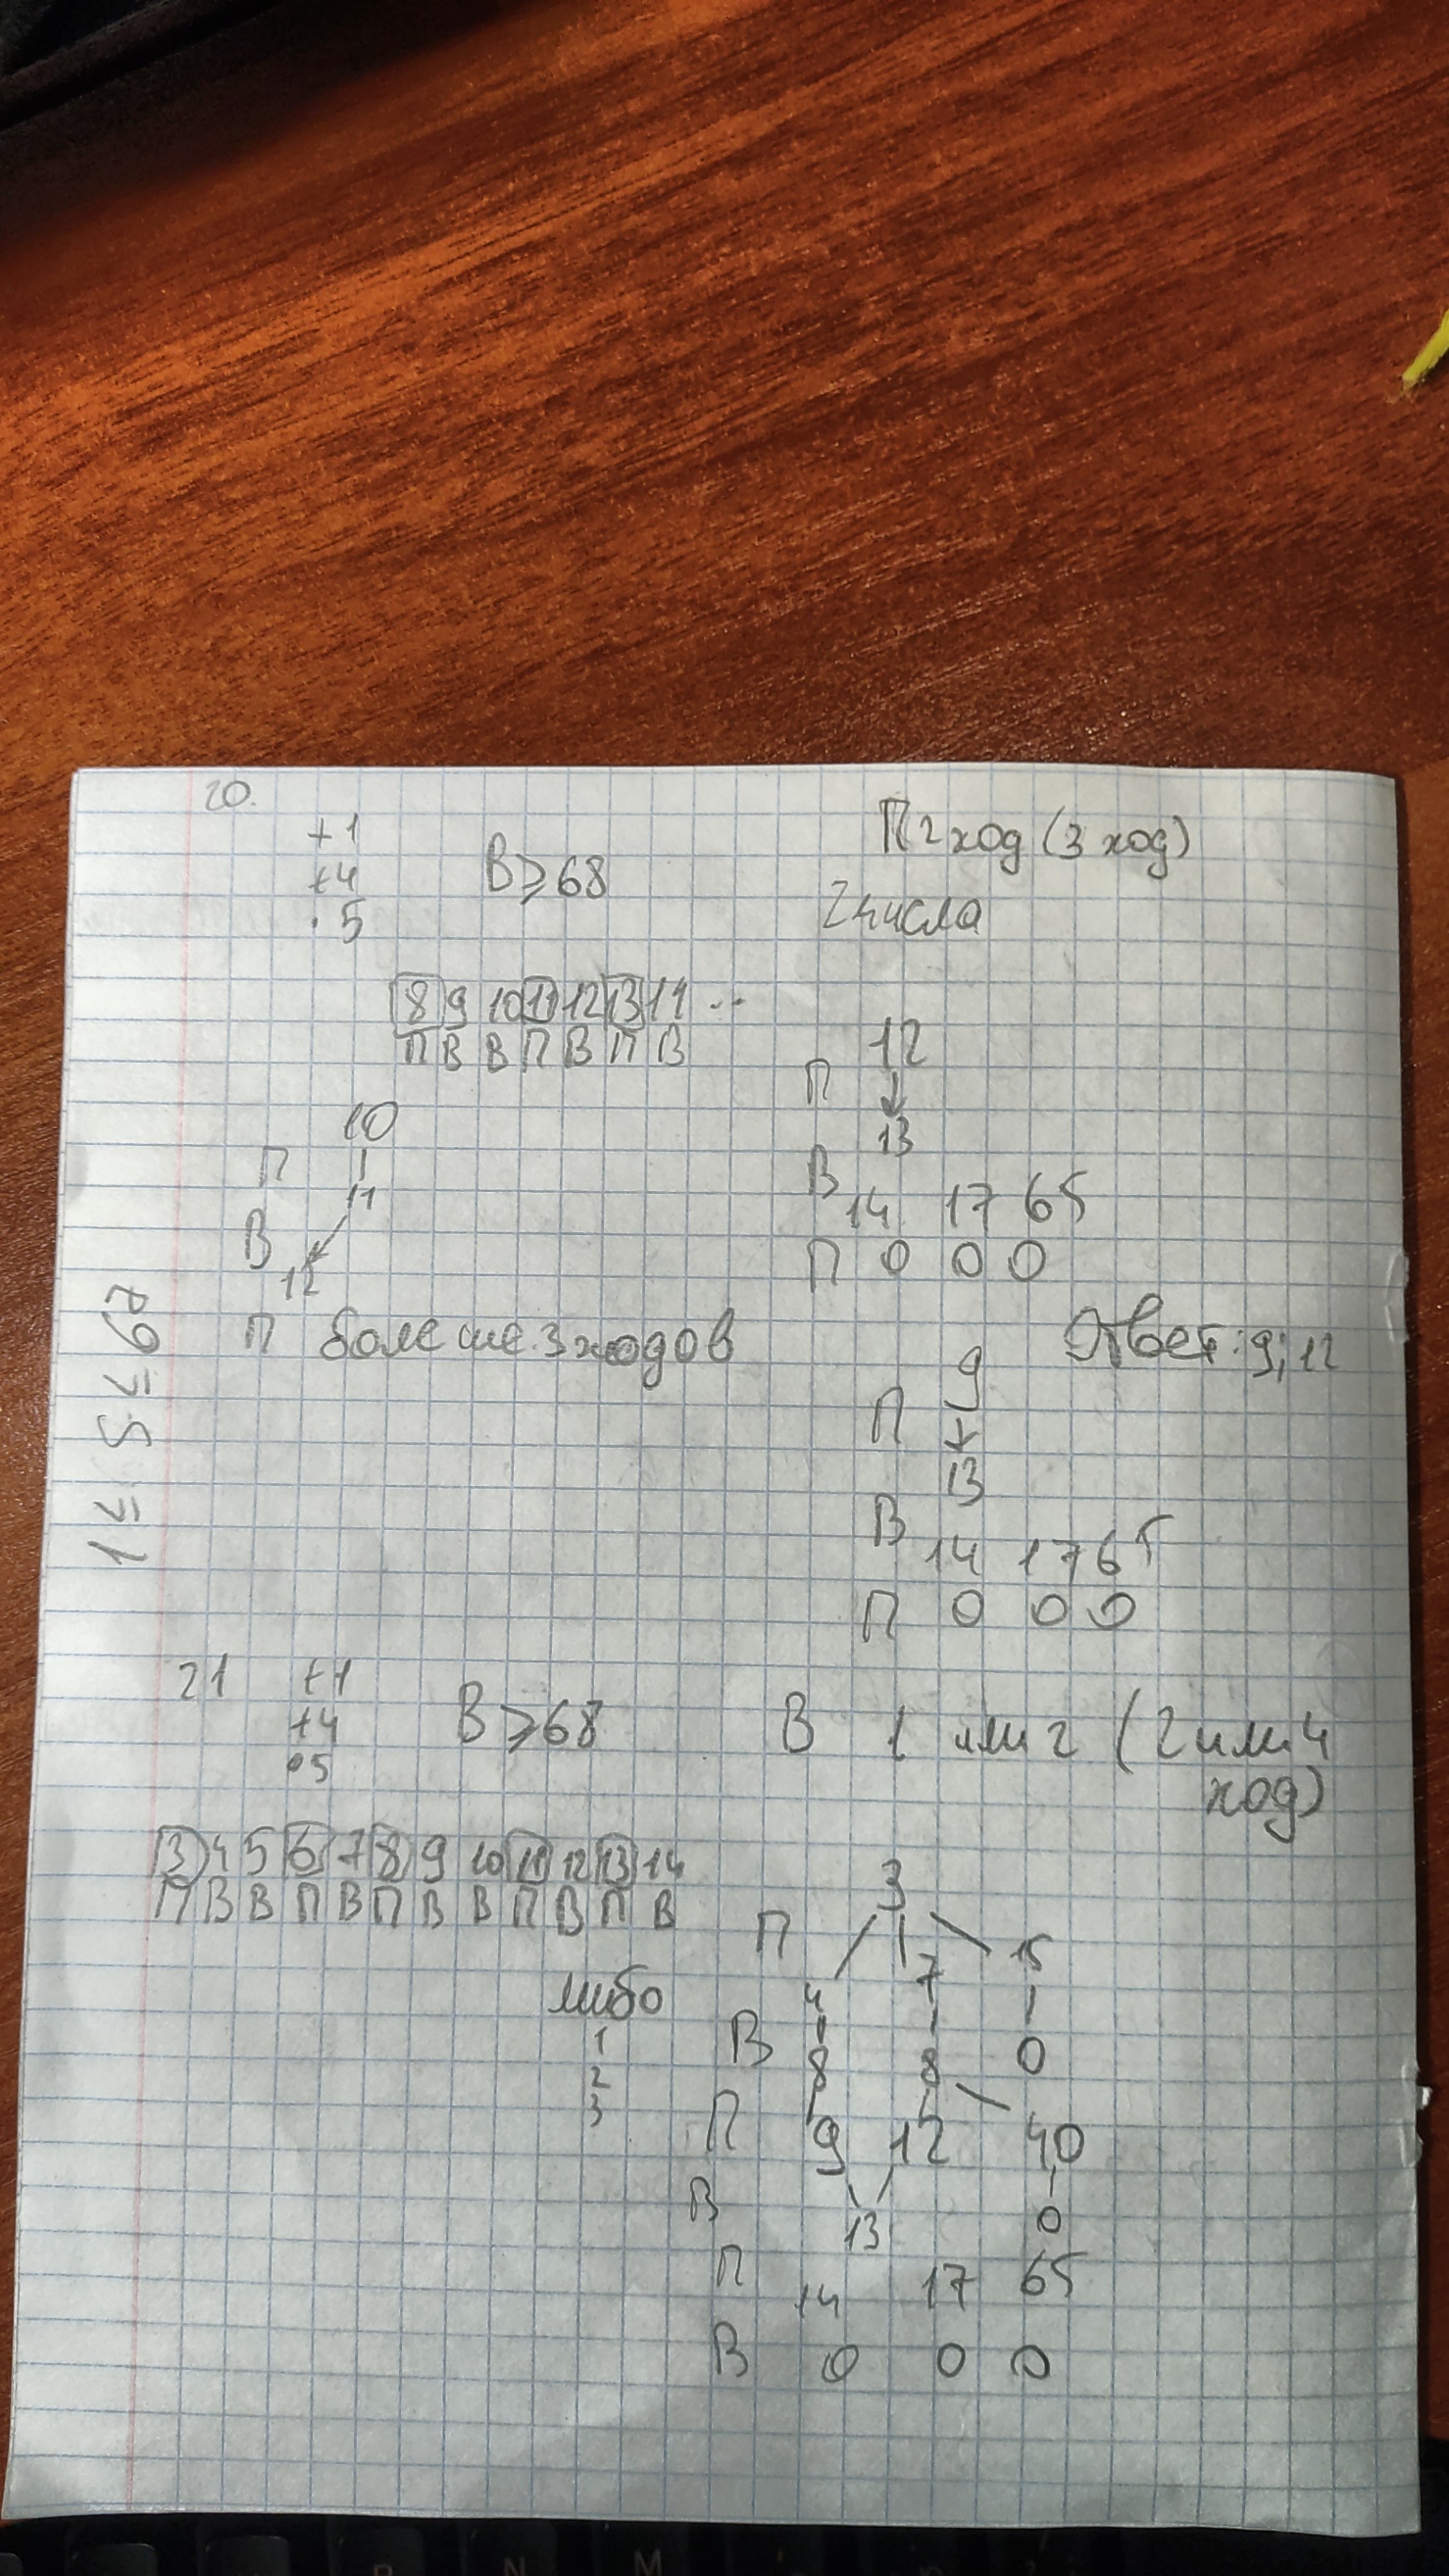 20.
+1
+4
· 5
В ≥ 68
П 2 ход (3 ход)
2 числа
8 9 10 11 12 13 14 ...
П В В П В П В
10
П
11
В
12
П больше 3 ходов
12
П
13
В
14 17 65
П 0 0 0
Ответ: 9; 12
9
П
13
В
14 17 65
П 0 0 0
1 ≤ S ≤ 67
21
+1
+4
• 5
В ≥ 68
В 1 или 2 (2 или 4
ход)
3 4 5 6 7 8 9 10 11 12 13 14
П В В П В П В В П В П В
либо
1
2
3
3
П
4 7 15
В
8 8 0
П 9 12 40
В
13 0
П
14 17 65
В 0 0 0
B N M